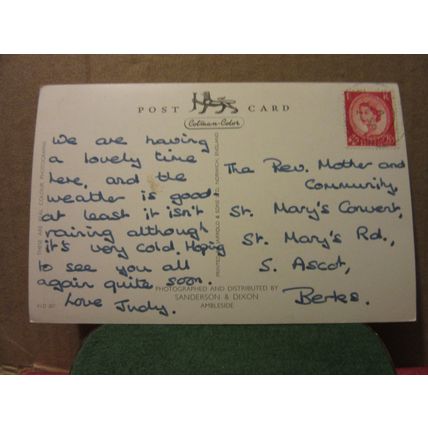 POST CARD
Colman-Color
We are having
a lovely time
here, and the
weather is good
at least it isn't
raining although
it's very cold. Hoping
to see you all
again quite soon.
Love Judy.
The Rev. Mother and
Community,
St. Mary's Convent,
St. Mary's Rd.,
S. Ascot,
Berks.
THESE ARE REAL COLOUR PHOTOGRAPHS
PHOTOGRAPHED AND DISTRIBUTED BY
SANDERSON & DIXON
AMBLESIDE